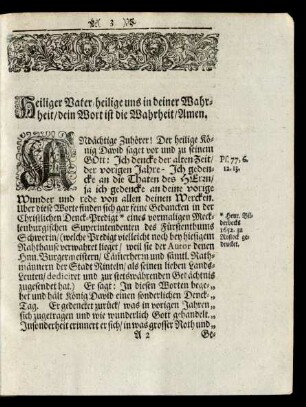 3
Heiliger Vater heilige uns in deiner Wahr-
heit/ dein Wort ist die Wahrheit/ Amen.
Andächtige Zuhörer! Der heilige Kö-
nig David saget vor und zu seinem
GOtt: Ich dencke der alten Zeit/
der vorigen Jahre- Ich geden-
cke an die Thaten des HErrn/
ja ich gedencke an deine vorige
Wunder und rede von allen deinen Wercken.
Uber diese Worte finden sich gar feine Gedancken in der
Christlichen Denck-Predigt * eines vormaligen Meck-
lenburgischen Superintendenten des Fürstenthums
Schwerin/ (welche Predigt vielleicht noch bey hiesigem
Rathhause verwahret lieget/ weil sie der Autor denen
Hnn. Burgermeistern/ Cäm̃erherrn und säm̃tl. Rath-
männern der Stadt Rinteln/ als seinen lieben Lands-
Leuten/ dediciret und zur stetswährenden Gedächtniß
zugesendet hat.) Er saget: In diesen Worten bege-
bet und hält König David einen sonderlichen Denck-
Tag. Er gedencket zurück/ was in vorigen Jahren
sich zugetragen und wie wunderlich Gott gehandelt.
Insonderheit erinnert er sich/ in was grosser Noth und
A 2
Ge-
Ps. 77, 6.
12. 13.
* Henr. Bil-
derbeckt
1652. zu
Rostock ge-
drucket.